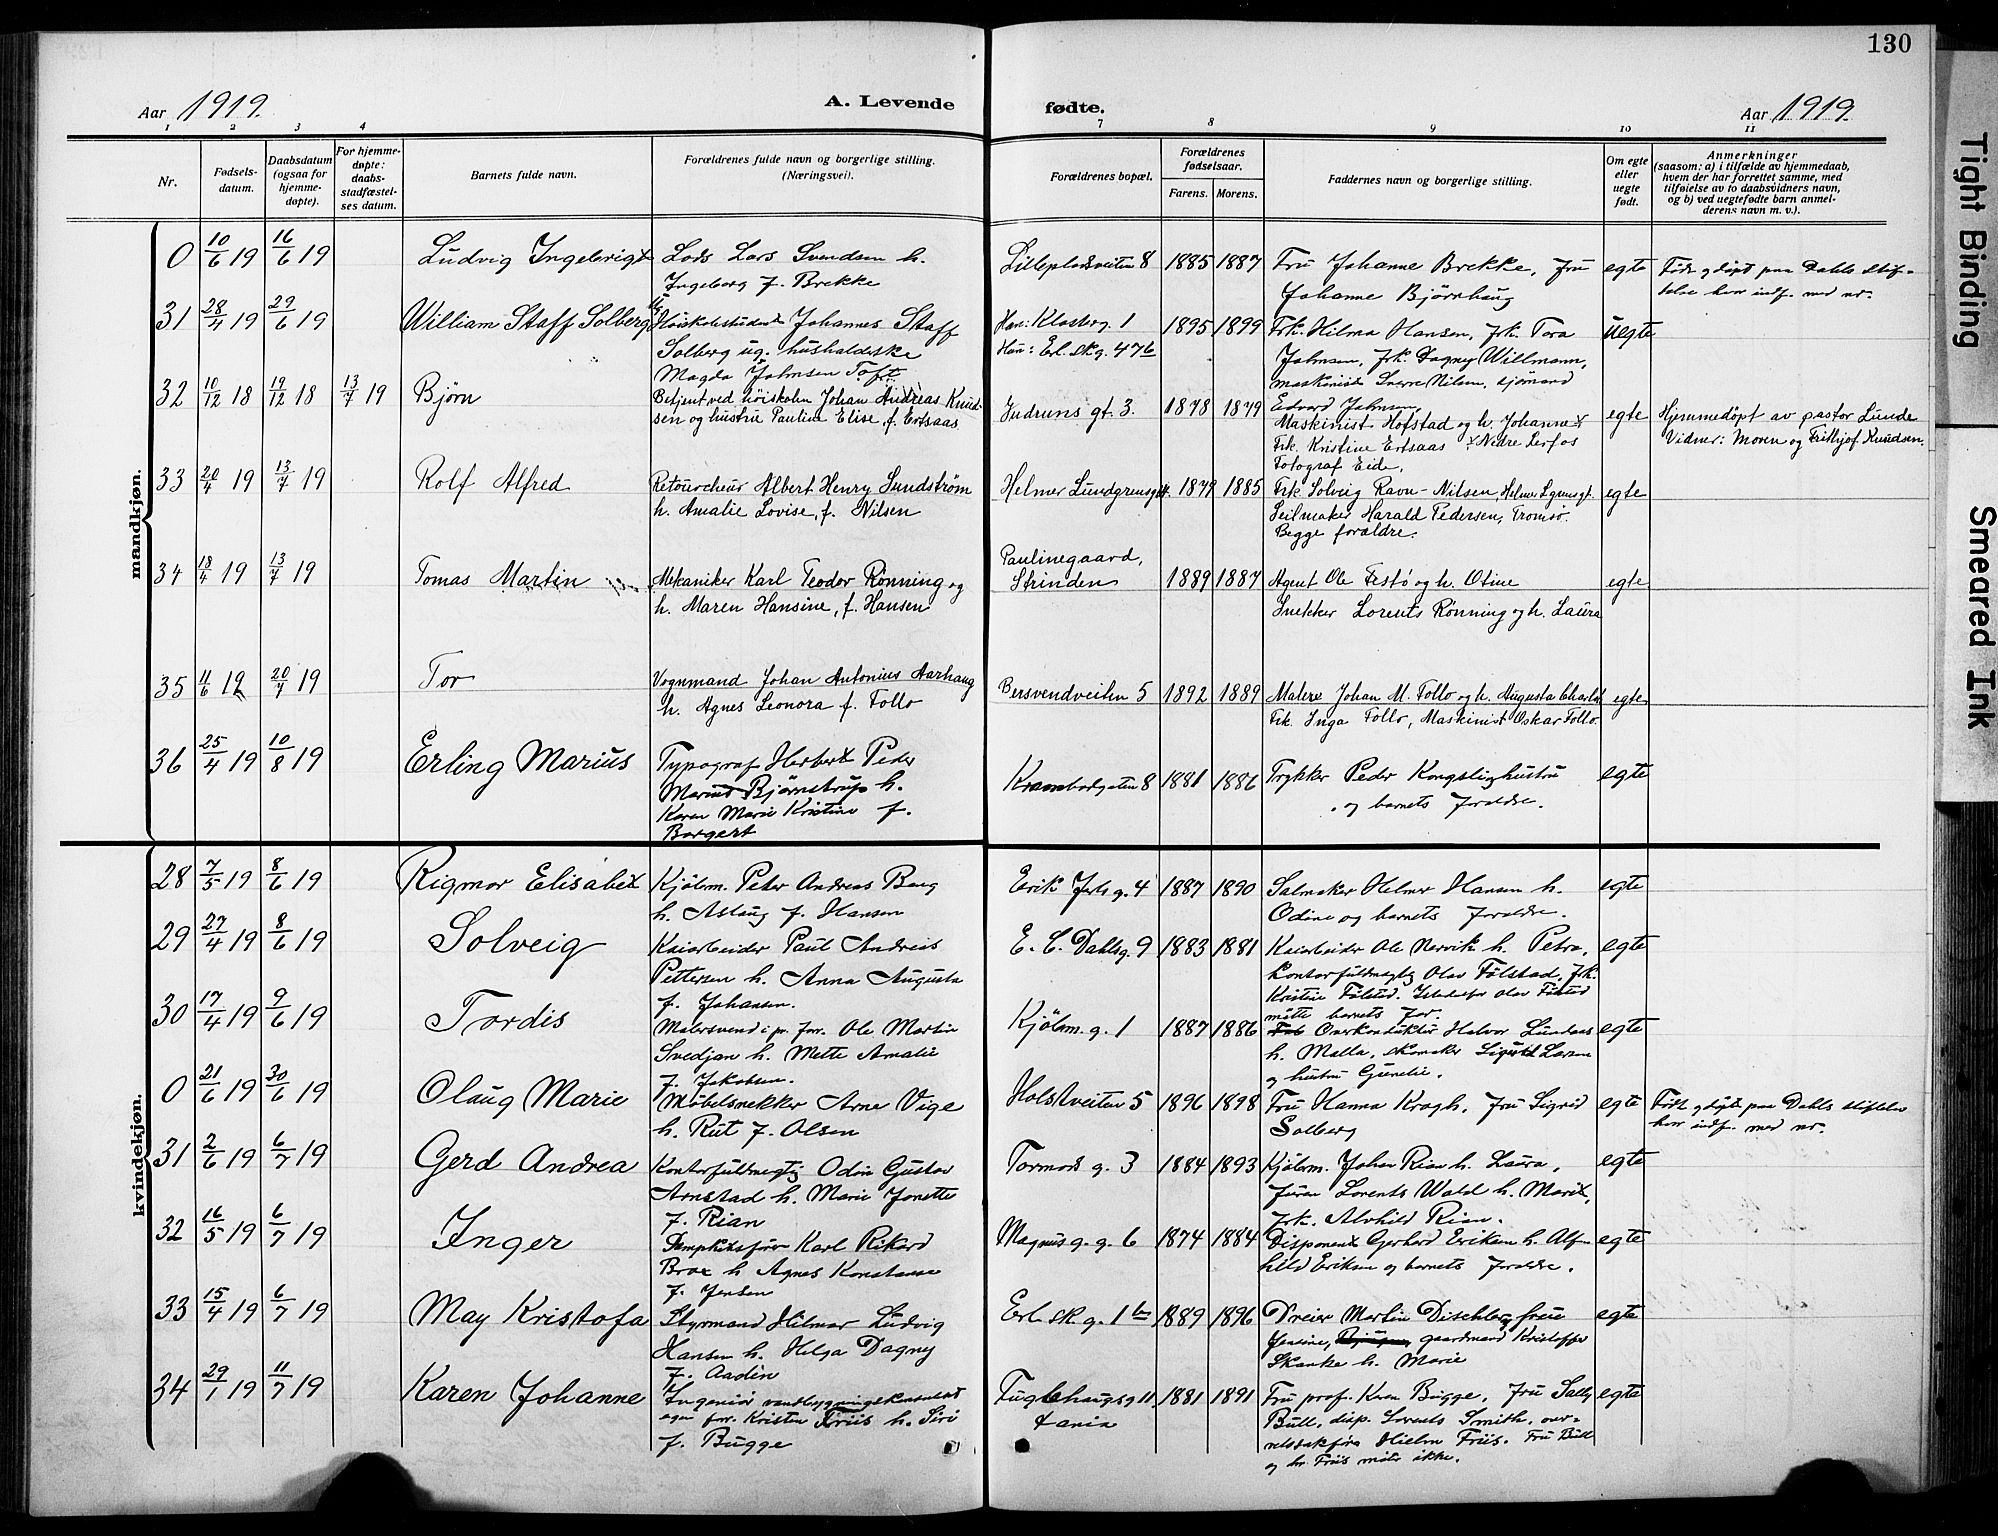 130
Aar 1919. A. Levende fødte. Aar 1919.
1 2 3 4 7 8 9 10 11
Nr.
Fødsels-
datum.
Daabsdatum
(ogsaa for
hjemme-
døpte).
For hjemme-
døpte:
daabs-
stadfæstel-
ses datum.
Barnets fulde navn.
Forældrenes fulde navn og borgerlige stilling.
(Næringsvei).
Forældrenes bopæl.
Forældrenes
fødselsaar.
Farens. Morens.
Faddernes navn og borgerlige stilling.
Om egte
eller
uegte
født.
Anmerkninger
(saasom: a) i tilfælde av hjemmedaab,
hvem der har forrettet samme, med
tilføielse av to daabsvidners navn,
og b) ved uegtefødte barn anmel-
derens navn m. v.).
mandkjøn.
0 10/6 19 16/6 19 Ludvig Ingebrigt Lods Lars Svendsen h.
Ingeborg f. Brekke
Lillepladsveiten 8 1885 1887 Fru Johanne Brekke, Fru
Johanne Bjørnhaug
egte Født og døpt paa Dahls stif-
telse her indf. med nr.
31 28/4 19 29/6 19 William Staff Solberg Ug. Høiskolestudent Johannes Staff
Solberg ug. husholderske
Magda Johnsen Toft
Han: Klosterg. 1
Hun: Erl. sk. g. 47b
1895 1899 Frk. Hilma Hansen, frk. Tora
Johnsen, frk. Dagny Willmann,
maskinist Sverre Nilsen, sjømand
Edvard Johnsen.
uegte
32 10/12 18 19/12 18 13/7 19 Bjørn Betjent ved høiskolen Johan Andreas Knud-
sen og hustru Pauline Elise, f. Ertsaas
Gudruns gt. 3. 1878 1879 Maskinist Hofstad og h. Johanna
Frk. Kristine Ertsaas Nedre Lerfos
Fotograf Eide.
egte Hjemmedøpt av pastor Lunde
Vidner: Moren og Frithjof Knudsen.
33 20/4 19 13/7 19 Rolf Alfred Retourcheur Albert Henry Sundström
h. Amalie Lovise, f. Nilsen
Helmer Lundgrensgt. 1879 1885 Frk. Solveig Ravn-Nilsen, Helmer Lgrensgt.
Seilmaker Harald Pedersen, Tromsø.
Begge foraldre.
egte
34 18/4 19 13/7 19 Tomas Martin Mekaniker Karl Teodor Rønning og
h. Maren Hansine, f. Hansen
Paulinegaard,
Strinden
1889 1887 Agent Ole Festø og h. Otine
Snekker Lorents Rønning og h. Laura
egte
35 11/6 19 20/7 19 Tor Vognmand Johan Antonius Aarhaug
h. Agnes Leonora f. Follo
Bersvendveiten 5 1892 1889 Maler Johan M. Follo og h. Augusta Charlot
Frk. Inga Follo, Maskinist Oskar Follo
egte
36 25/4 19 10/8 19 Erling Marius Typograf Herbert Peder
Marius Bjørnstrup h.
Karen Marie Kristine f.
Borgert
Krambodgaten 8 1881 1886 Trykker Peder Kongslighustru
og barnets foraldre.
egte
kvindekjøn.
28 7/5 19 8/6 19 Rigmor Elisabet Kjøbm. Peter Andreas Berg
h. Aslaug f. Hansen
Erik Jarls g. 4 1887 1890 Salmaker Helmer Hansen h.
Odine og barnets foraldre.
egte
29 27/4 19 8/6 19 Solveig Kaiarbeider Paul Andreas
Pettersen h. Anna Augusta
f. Johansen.
E. C. Dahlsg. 9 1883 1881 Kaiarbeider Ole Nervik h. Petra,
kontorfuldmægtig Olav Følstad, frk.
Kristine Følstad. Istedetfor Olav Følstad
møtte barnets far.
egte
30 17/4 19 9/6 19 Tordis Malersvend i pr. forr. Ole Martin
Svedjan h. Mette Amalie
f. Jakobsen.
Kjøbm. g. 1 1887 1886 Overkonduktør Halvor Lundaas
h. Malla, skomaker Sigurd Larsen
og hustru Gunelie.
egte
0 21/6 19 30/6 19 Olaug Marie Møbelsnekker Arne Vige
h. Rut f. Olsen
Holstveiten 5 1896 1898 Fru Hanna Kragh, fru Sigrid
Solberg
egte Født og døpt paa Dahls stiftelse
her indf. med nr.
31 2/6 19 6/7 19 Gerd Andrea Kontorfuldmegtig Odin Gustav
Arnstad h. Marie Jonette
f. Rian
Tormods g. 3 1884 1893 Kjøbm. Johan Rian h. Laura,
Jurem Lorents Wold h. Marit,
frk. Alvhild Rian.
egte
32 16/5 19 6/7 19 Inger Dampskibsfører Karl Rikard
Brox h. Agnes Konstanse
f. Jensen
Magnus g. g. 6 1874 1884 Disponent Gerhard Eriksen h. Alf-
hild Eriksen og barnets foraldre.
egte
33 15/4 19 6/7 19 May Kristofa Styrmand Hilmar Ludvig
Hansen h. Helga Dagny
f. Aadin
Erl. sk. g. 1b 1889 1896 Dreier Martin Dischler, frue
Jensine, gaardmand Kristoffer
Skanke h. Marie
egte
34 29/1 19 11/7 19 Karen Johanne Ingeniør vandbygningskonsulent
egen forr. Kristen Friis h. Siri
f. Bugge
Fuglehaugsg 11
1881 1891 Fru prof. Karen Bugge, fru Sally
Bull, disp. Lorents Smith, over-
retssakfører Hielm Friis. Fru Bull
og hr. Friis møtte ikke.
egte
Tight Binding
Smeared Ink